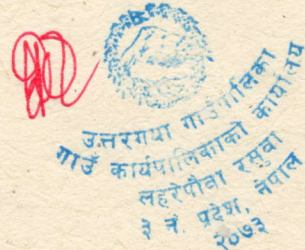 उत्तरगया गाउँपालिका
गाउँ कार्यपालिकाको कार्यालय
लहरेपौवा रसुवा
३ नं. प्रदेश, नेपाल
२०७३